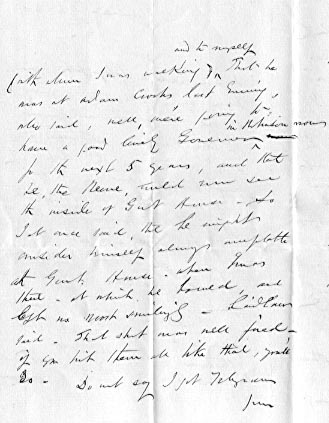 and to myself
(with whom I was walking) That he
was at Adam Crooks last Evening,
who said, well, we're going to
have a good lively Governor
for the next 5 years, and that
he, the Reeve, would now see
the inside of Govt House - So
I at once said, that he might
consider himself always acceptable
at Govt House - when I was
there - at which he bowed, and
left us most smilingly - Laidlaw
said - That shot was well fired -
if you hit them all like that, you'll
do - Do not say I got Telegram
from